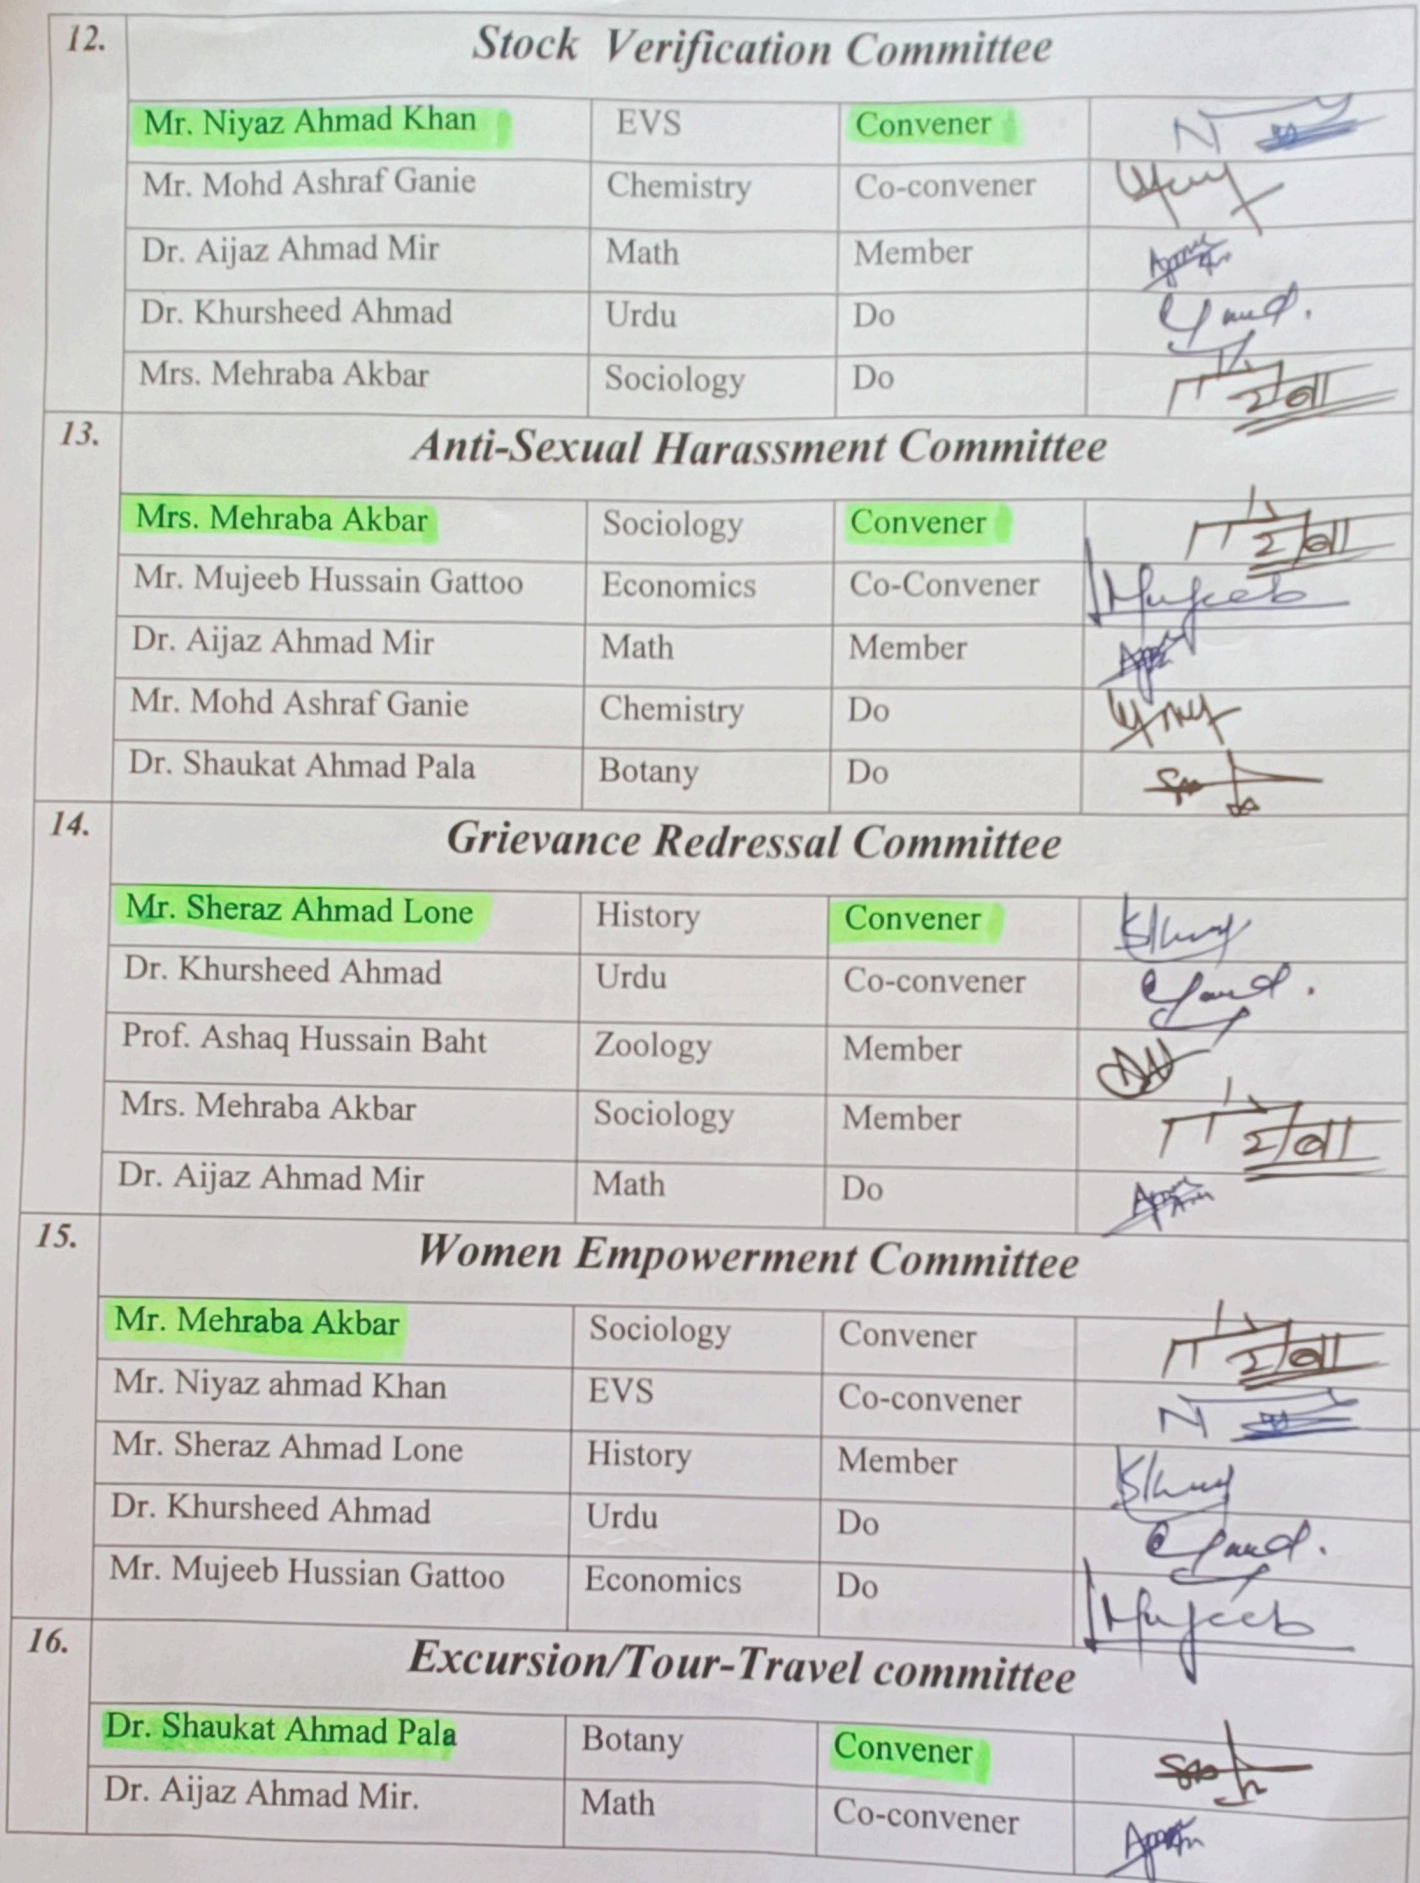 12. Stock Verification Committee
Mr. Niyaz Ahmad Khan EVS Convener
Mr. Mohd Ashraf Ganie Chemistry Co-convener
Dr. Aijaz Ahmad Mir Math Member
Dr. Khursheed Ahmad Urdu Do
Mrs. Mehraba Akbar Sociology Do
13. Anti-Sexual Harassment Committee
Mrs. Mehraba Akbar Sociology Convener
Mr. Mujeeb Hussain Gattoo Economics Co-Convener Mujeeb
Dr. Aijaz Ahmad Mir Math Member
Mr. Mohd Ashraf Ganie Chemistry Do
Dr. Shaukat Ahmad Pala Botany Do
14. Grievance Redressal Committee
Mr. Sheraz Ahmad Lone History Convener
Dr. Khursheed Ahmad Urdu Co-convener
Prof. Ashaq Hussain Baht Zoology Member
Mrs. Mehraba Akbar Sociology Member
Dr. Aijaz Ahmad Mir Math Do
15. Women Empowerment Committee
Mr. Mehraba Akbar Sociology Convener
Mr. Niyaz ahmad Khan EVS Co-convener
Mr. Sheraz Ahmad Lone History Member
Dr. Khursheed Ahmad Urdu Do
Mr. Mujeeb Hussian Gattoo Economics Do Mujeeb
16. Excursion/Tour-Travel committee
Dr. Shaukat Ahmad Pala Botany Convener
Dr. Aijaz Ahmad Mir. Math Co-convener